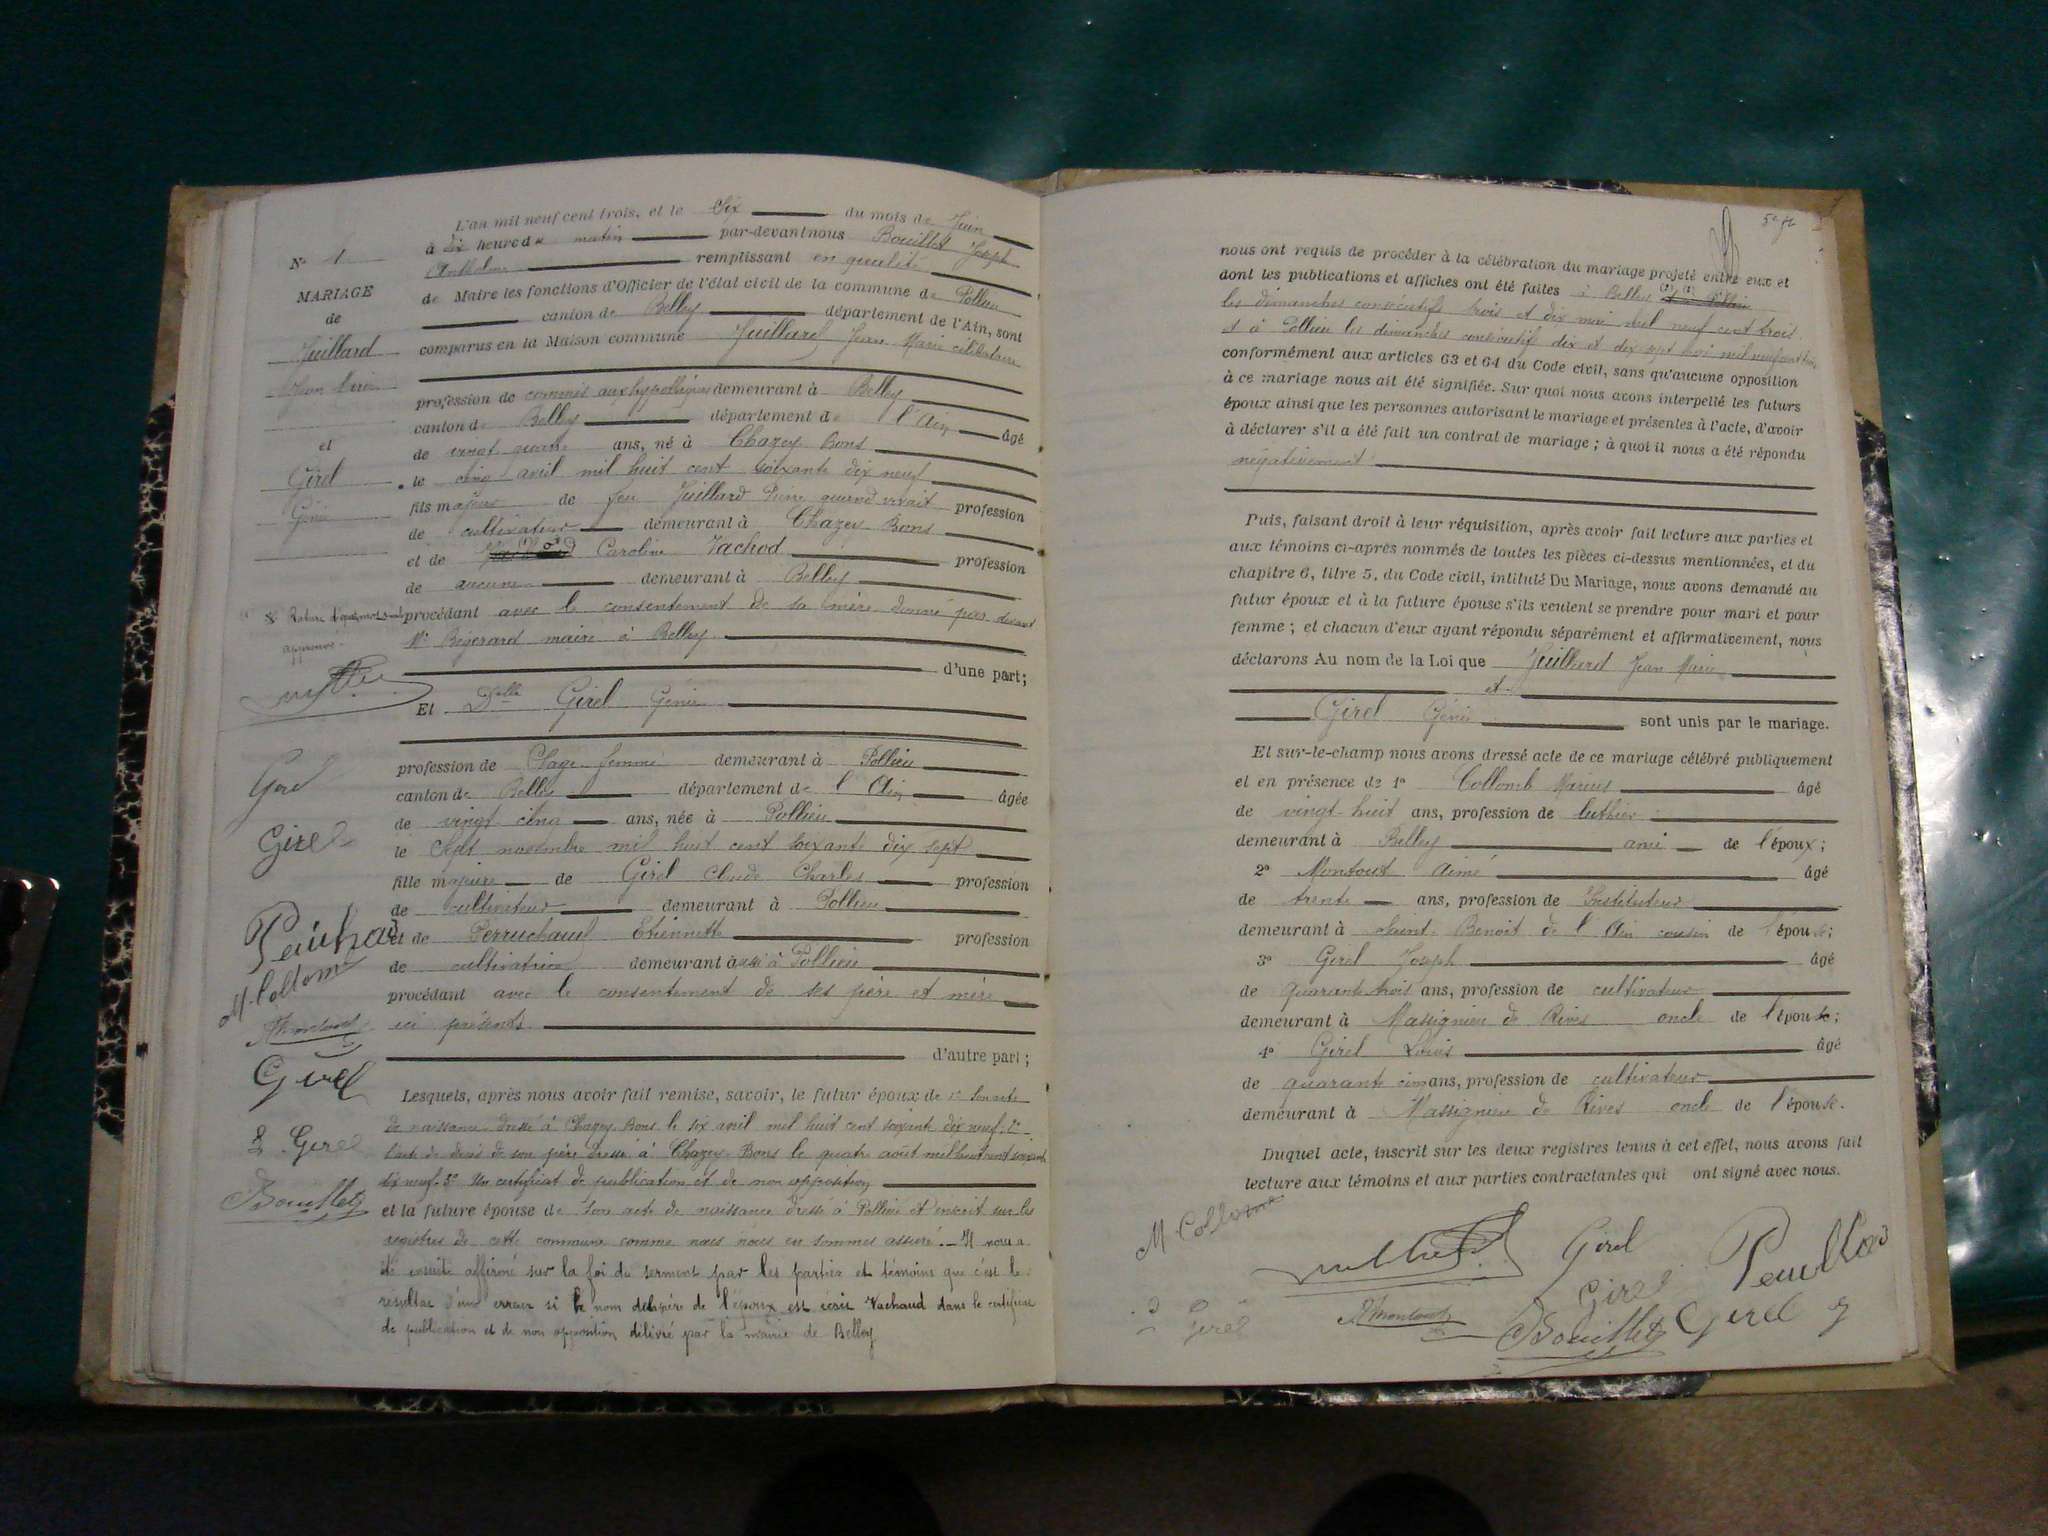 L'an mil neuf cent trois, et le Six du mois de Juin
à dix heures du matin par-devant nous Bouillet Joseph
Anthelme remplissant en qualité
N° 1
de Maire les fonctions d'Officier de l'état civil de la commune de Pollieu
MARIAGE
canton de Belley département de l'Ain, sont
de
comparus en la Maison commune Juillard Jean Marie célibataire
Juillard
Jean Marie
profession de commis aux hypothèques demeurant à Belley
canton de Belley département de l'Ain âgé
et
de vingt quatre ans, né à Chazey Bons
Girel
le cinq avril mil huit cent soixante dix neuf
Génie
fils majeur de feu Juillard Pierre quand vivait profession
de cultivateur demeurant à Chazey Bons
et de Caroline Vachod profession
de aucune demeurant à Belley
Rature d'quatre mots approuvé.
procédant avec le consentement de sa mère donné par devant
Mr maire à Belley
d'une part;
Et Delle Girel Génie
profession de Sage femme demeurant à Pollieu
Girel
canton de Belley département de l'Ain âgée
de vingt cinq ans, née à Pollieu
Girel
le Sept novembre mil huit cent soixante dix sept
fille majeure de Girel Claude Charles profession
de cultivateur demeurant à Pollieu
et de Perruchaud Etiennette profession
M. Collomb
de cultivatrice demeurant aussi à Pollieu
procédant avec le consentement de ses père et mère
AMontout
ici présents
d'autre part;
Girel
Lesquels, après nous avoir fait remise, savoir, le futur époux de 1° Son acte
Girel
de naissance dressé à Chazey-Bons le six avril mil huit cent soixante dix neuf. 2°
l'acte de décès de son père dressé à Chazey-Bons le quatre août mil huit cent soixante
dix neuf. 3° Un certificat de publication et de non opposition
JBouillet
et la future épouse de Son acte de naissance dressé à Pollieu et inscrit sur les
registres de cette commune comme nous nous en sommes assuré. – Il nous a
été ensuite affirmé sur la foi du serment par les parties et témoins que c'est le
résultat d'une erreur si le nom de la mère de l'époux est écrit Vachaud dans le certificat
de publication et de non opposition délivré par la mairie de Belley
nous ont requis de procéder à la célébration du mariage projeté entre eux et
dont les publications et affiches ont été faites à Belley
les dimanches consécutifs trois et dix mai mil neuf cent trois
et à Pollieu les dimanches consécutifs dix et dix sept mai mil neuf cent trois
conformément aux articles 63 et 64 du Code civil, sans qu'aucune opposition
à ce mariage nous ait été signifiée. Sur quoi nous avons interpellé les futurs
époux ainsi que les personnes autorisant le mariage et présentes à l'acte, d'avoir
à déclarer s'il a été fait un contrat de mariage; à quoi il nous a été répondu
négativement
Puis, faisant droit à leur réquisition, après avoir fait lecture aux parties et
aux témoins ci-après nommés de toutes les pièces ci-dessus mentionnées, et du
chapitre 6, titre 5, du Code civil, intitulé Du Mariage, nous avons demandé au
futur époux et à la future épouse s'ils veulent se prendre pour mari et pour
femme; et chacun d'eux ayant répondu séparément et affirmativement, nous
déclarons Au nom de la Loi que Juillard Jean Marie
et
Girel Génie sont unis par le mariage.
Et sur-le-champ nous avons dressé acte de ce mariage célébré publiquement
et en présence de 1° Collomb Marius âgé
de vingt-huit ans, profession de luthier
demeurant à Belley ami de l'époux;
2° Montout Aimé âgé
de trente ans, profession de Instituteur
demeurant à Saint-Benoit de l'Ain cousin de l'épouse;
3° Girel Joseph âgé
de quarante trois ans, profession de cultivateur
demeurant à Massignieu de Rives oncle de l'épouse;
4° Girel Louis âgé
de quarante cinq ans, profession de cultivateur
demeurant à Massignieu de Rives oncle de l'épouse.
Duquel acte, inscrit sur les deux registres tenus à cet effet, nous avons fait
lecture aux témoins et aux parties contractantes qui ont signé avec nous.
M Collomb
Girel
Girel
AMontout
JBouillet
Girel
Girel